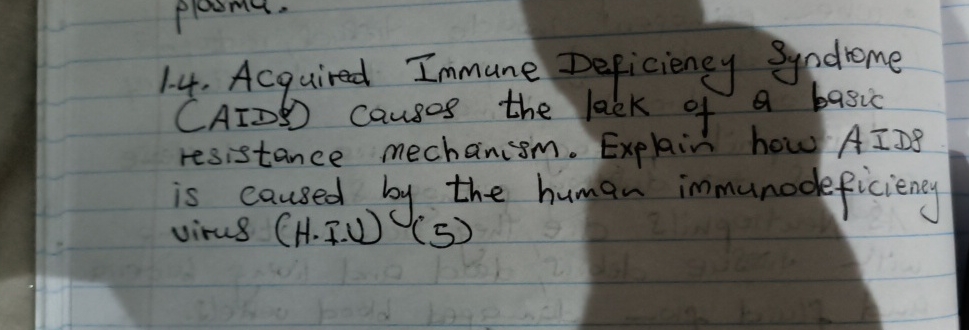 plasma.
1.4. Acquired Immune Deficiency Syndrome
(AIDS) causes the lack of a basic
resistance mechanism. Explain how AIDS
is caused by the human immunodeficiency
virus (H.I.V) (5)